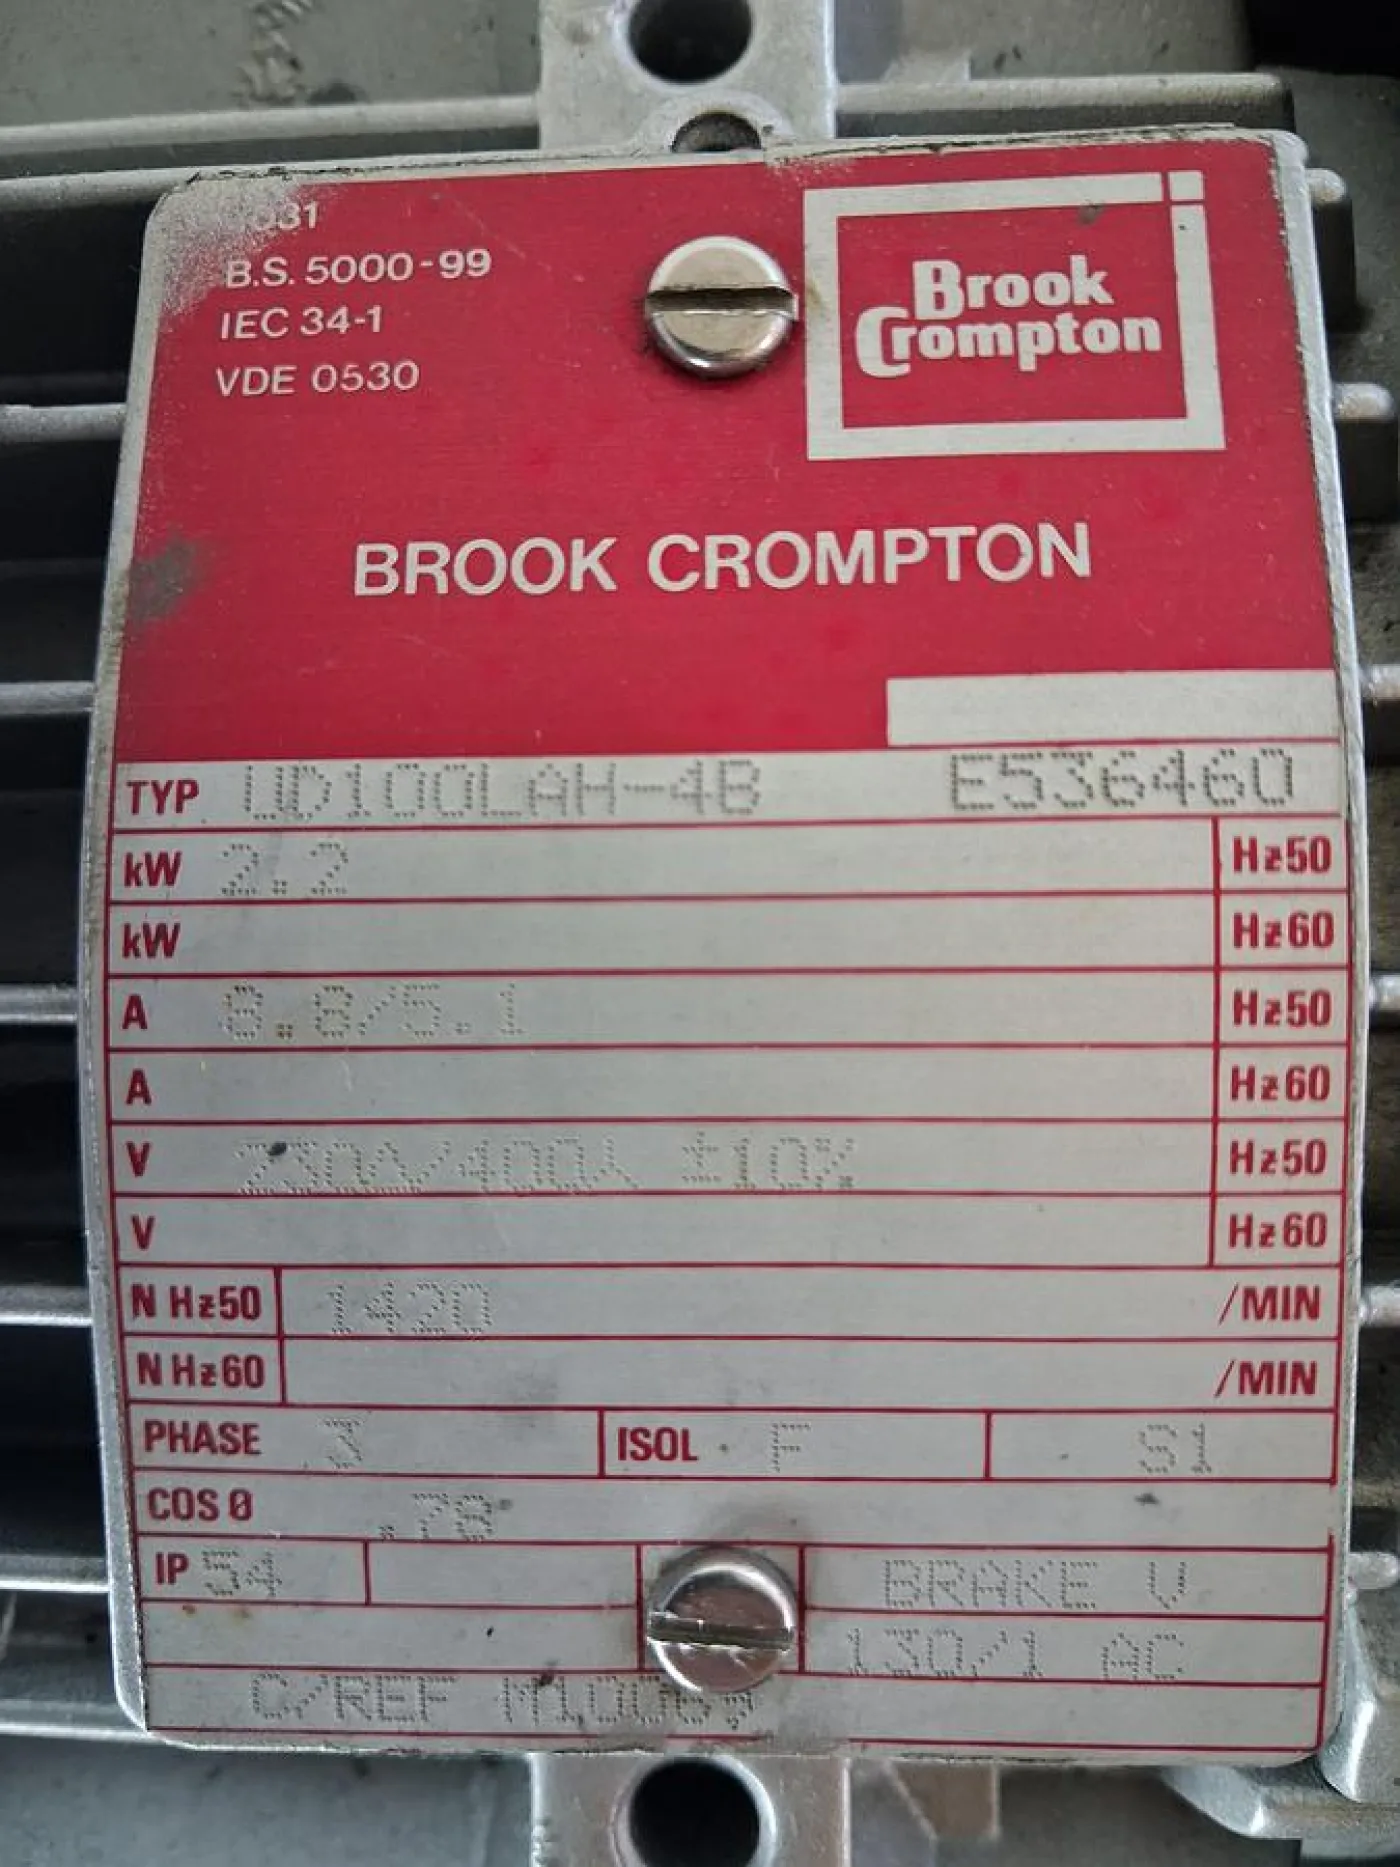 Q31
B.S. 5000-99
IEC 34-1
VDE 0530
Brook
Crompton
BROOK CROMPTON
TYP UD100LAH-4B E536460
kW 2.2 Hz50
kW Hz60
A 8.8/5.1 Hz50
A Hz60
V 230Δ/400Y ±10% Hz50
V Hz60
N Hz50 1420 /MIN
N Hz60 /MIN
PHASE 3 ISOL F S1
COS Ø .78
IP 54 BRAKE V
AC
C/REF